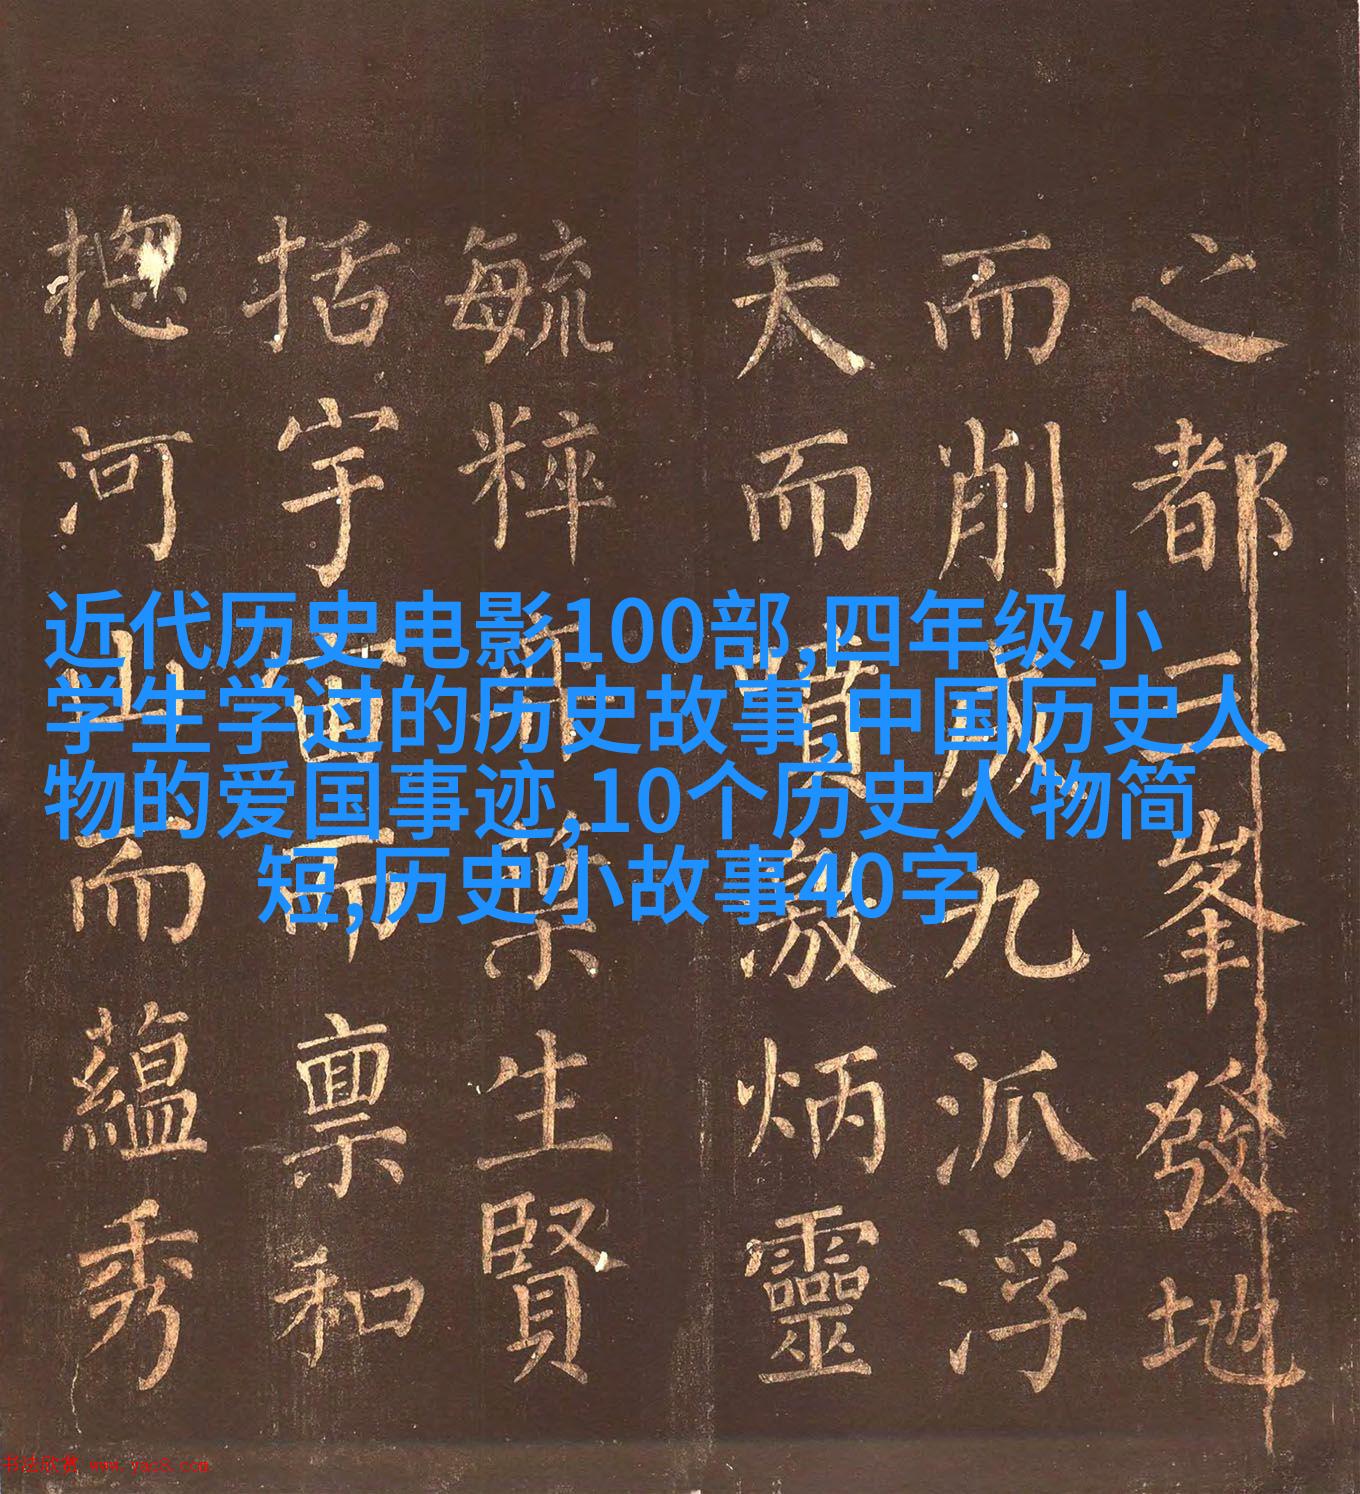 近代历史电影100部,四年级小
学生学过的历史故事,中国历史人
物的爱国事迹,10个历史人物简
短,历史小故事40字
之都三峯發地
而削成九派浮
天而噴激炳靈
毓粹藥生賢
括宇宙而禀和
摠河山而蘊秀
书法欣赏 www.yac8.com